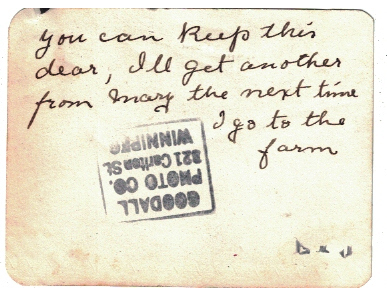 you can keep this
dear, I'll get another
from Mary the next time
I go to the
farm
GOODALL
PHOTO CO.
321 Carlton St.
WINNIPEG